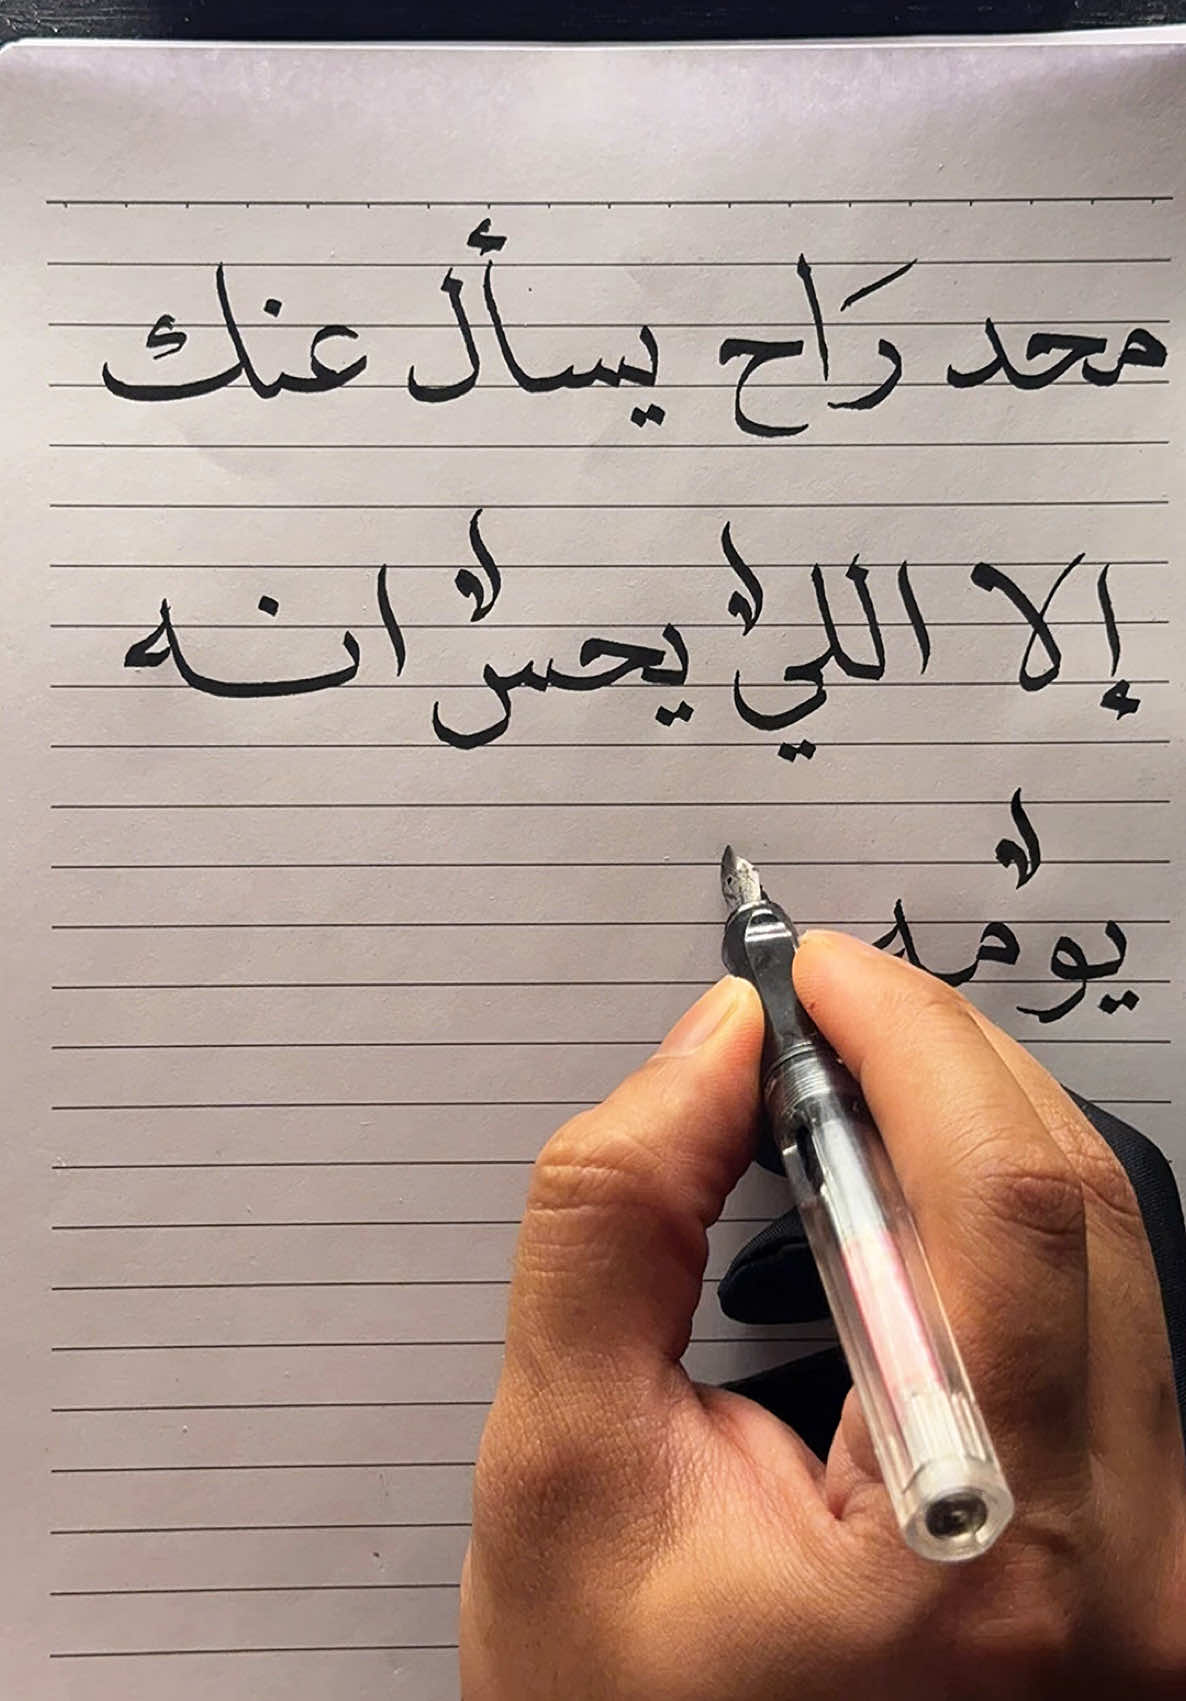 محد رَاح يسأل عنك
إلا اللي يحس انه
يومه